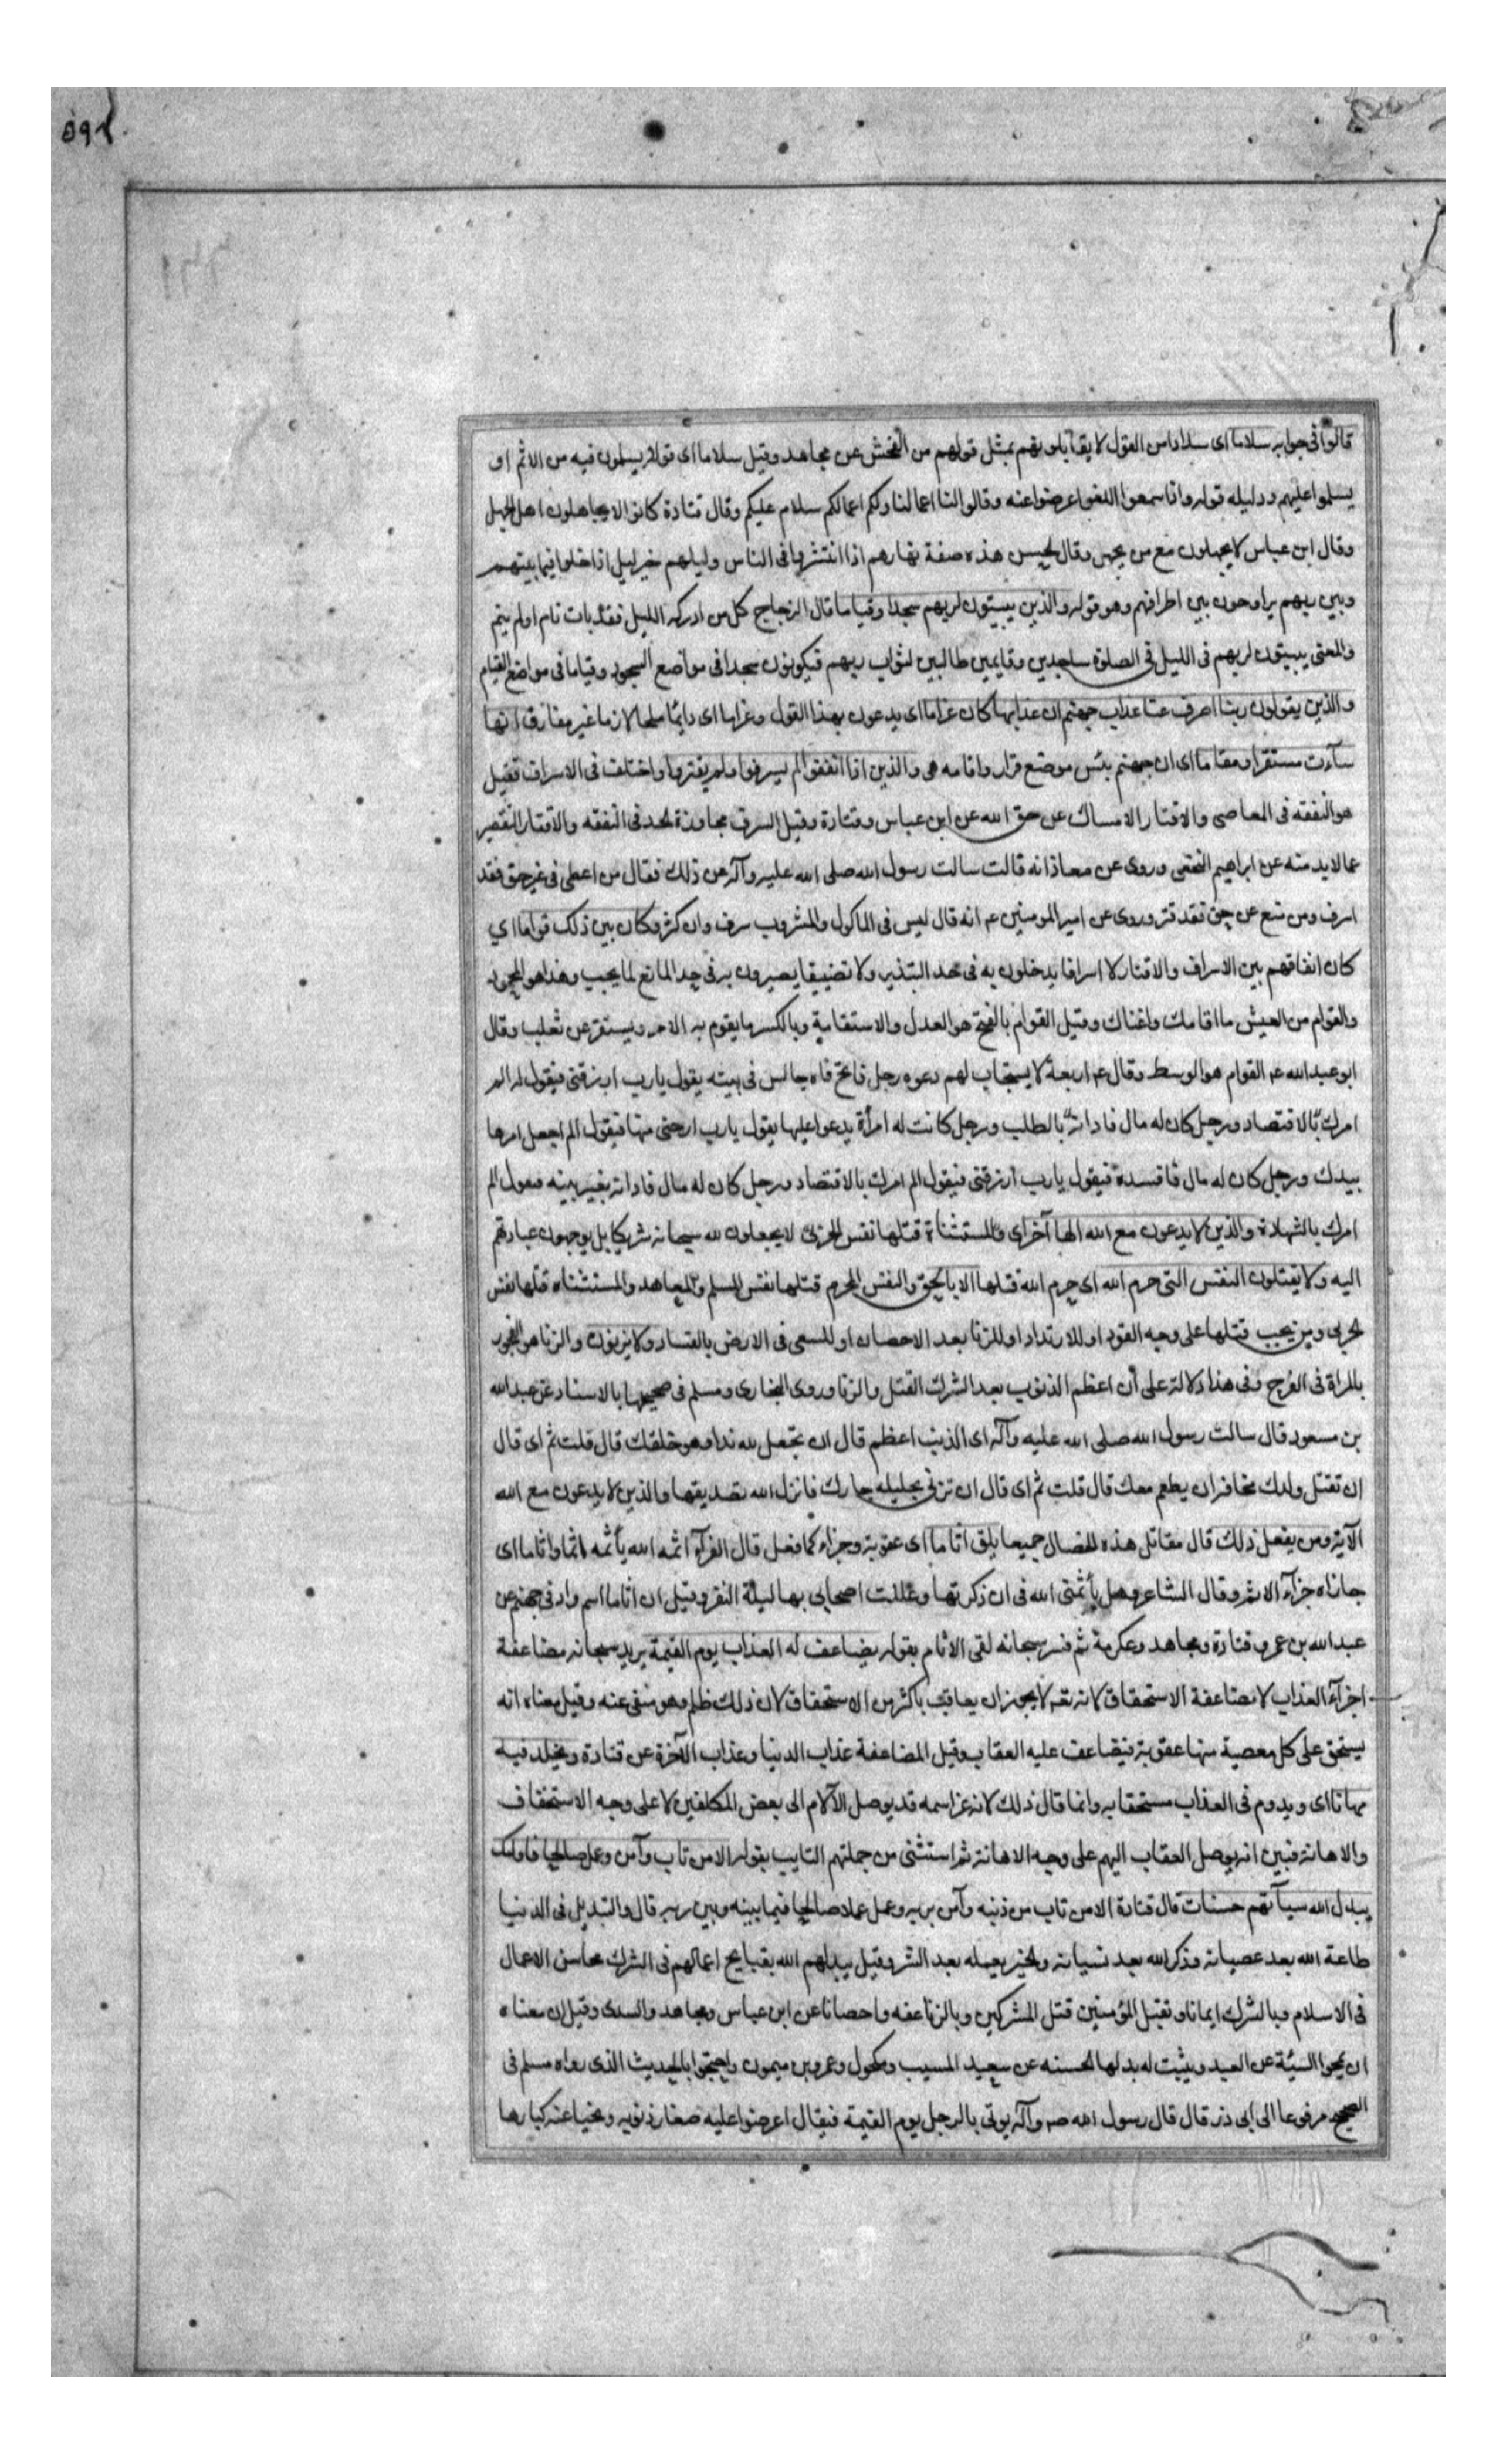 ٥٩٢
قالوا في جوابه سلاما اى سدادا من القول لا يقابلونهم بمثل قولهم من الفحش عن مجاهد وقيل سلاما اى قولا يسلمون فيه من الاثم او
يسلموا عليهم ودليله قوله واذا سمعوا اللغو اعرضوا عنه وقالوا لنا اعمالنا ولكم اعمالكم سلام عليكم وقال قتادة كانوا لا يجاهلون اهل الجهل
وقال ابن عباس لا يجهلون مع من يجهل وقال الحسن هذه صفة نهارهم اذا انتشروا فى الناس وليلهم خير ليل اذا خلوا فيما بينهم
وبين ربهم يراوحون بين اطرافهم وهو قوله والذين يبيتون لربهم سجدا وقياما قال الزجاج كل من ادركه الليل فقد بات نام او لم ينم
والمعنى يبيتون لربهم فى الليل فى الصلوة ساجدين وقايمين طالبين لثواب ربهم فيكونون سجدا فى مواضع السجود وقياما فى مواضع القيام
والذين يقولون ربنا اصرف عنا عذاب جهنم ان عذابها كان غراما اى يدعون بهذا القول وغراما اى دايما ملحا لازما غير مفارق انها
سآءت مستقرا ومقاما اى ان جهنم بئس موضع قرار واقامه هى والذين اذا انفقوا لم يسرفوا ولم يقتروا واختلف فى الاسراف فقيل
هو النفقه فى المعاصى والاقتار الامساك عن حق الله عن ابن عباس وقتادة وقيل السرف مجاوزة الحد فى النفقه والاقتار التقصير
عما لا بد منه عن ابراهيم النخعى وروى عن معاذ انه قالت سالت رسول الله صلى الله عليه وآله عن ذلك فقال من اعطى فى غير حق فقد
اسرف ومن منع عن حق فقد قتر وروى عن امير المومنين عم انه قال ليس فى الماكول والمشروب سرف وان كثر وكان بين ذلك قواما اي
كان انفاقهم بين الاسراف والاقتار لا اسرافا يدخلون به فى حد التبذير ولا تضييقا يصيرون به فى حد المانع لما يجب وهذا هو المحمود
والقوام من العيش ما اقامك واغناك وقيل القوام بالفتح هو العدل والاستقامة وبالكسر ما يقوم به الامر ويستقر عن ثعلب وقال
ابو عبد الله عم القوام هو الوسط وقال عم اربعة لا يستجاب لهم دعوه رجل فاتح فاه جالس فى بيته يقول يارب ارزقنى فيقول له الم
امرك بالاقتصاد ورجل كان له مال فادانه بالطلب ورجل كانت له امرأة يدعو عليها يقول يارب ارحنى منها فيقول الم اجعل امرها
بيدك ورجل كان له مال فافسده فيقول يارب ارزقنى فيقول الم امرك بالاقتصاد ورجل كان له مال فادانه بغير بينه فيقول الم
امرك بالشهادة والذين لا يدعون مع الله الها آخر اى والمستثناة قتلها نفس الحربى لا يجعلون لله سبحانه شريكا بل يوجهون عبادتهم
اليه ولا يقتلون النفس التى حرم الله اى حرم الله قتلها الا بالحق والنفس المحرم قتلها نفس المسلم والمعاهد والمستثناه قتلها نفس
الحربى ومن يجب قتلها على وجه القود او للارتداد او للزنا بعد الاحصان او للسعى فى الارض بالفساد ولا يزنون والزنا هو الفجور
بالمراة فى الفرج وفى هذا دلالة على أن اعظم الذنوب بعد الشرك القتل والزنا وروى البخارى ومسلم فى صحيحهما بالاسناد عن عبد الله
بن مسعود قال سالت رسول الله صلى الله عليه وآله اى الذنب اعظم قال ان تجعل لله ندا وهو خلقك قال قلت ثم اى قال
ان تقتل ولدك مخافة ان يطعم معك قال قلت ثم اى قال ان تزنى بحليله جارك فانزل الله تصديقها والذين لا يدعون مع الله
الآية ومن يفعل ذلك قال مقاتل هذه الخصال جميعا يلق اثاما اى عقوبة وجزاء لما فعل قال الفرآء اثمه الله يأثمه اثما واثاما اى
جازاه جزآء الاثم وقال الشاعر وهل يأثمنى الله فى ان ذكرتها وعللت اصحابى بها ليلة النفر وقيل ان اثاما اسم واد فى جهنم عن
عبد الله بن عمرو قتادة ومجاهد وعكرمة ثم فسر سبحانه لقى الاثام بقوله يضاعف له العذاب يوم القيمة يريد سبحانه مضاعفة
اجزآء العذاب لا مضاعفة الاستحقاق لانه تعه لا يجوز ان يعاقب باكثر من الاستحقاق لان ذلك ظلم وهو منفى عنه وقيل معناه انه
يستحق على كل معصية منها عقوبة فيضاعف عليه العقاب وقيل المضاعفة عذاب الدنيا وعذاب الآخرة عن قتادة ويخلد فيه
مهانا اى ويدوم فى العذاب مستحقا به وانما قال ذلك لانه عز اسمه قد يوصل الآلام الى بعض المكلفين لا على وجه الاستخفاف
والاهانة فبين انه يوصل العقاب اليهم على وجه الاهانة ثم استثنى من جملتهم التايب بقوله الا من تاب وآمن وعمل صالحا فاولئك
يبدل الله سيآتهم حسنات قال قتادة الا من تاب من ذنبه وآمن بربه وعمل عملا صالحا فيما بينه وبين ربه قال والتبديل فى الدنيا
طاعة الله بعد عصيانه وذكر الله بعد نسيانه والخير يعمله بعد الشر وقيل يبدلهم الله بقبايح اعمالهم فى الشرك محاسن الاعمال
فى الاسلام وبالشرك ايمانا وبقتل المؤمنين قتل المشركين وبالزنا عفه واحصانا عن ابن عباس ومجاهد والسدى وقيل ان معناه
ان يمحو السيئة عن العبد ويثبت له بدلها الحسنه عن سعيد المسيب ومكحول وعمرو بن ميمون واحتجوا بالحديث الذى رواه مسلم فى
الصحيح مرفوعا الى ابى ذر قال قال رسول الله صم وآله يوتى بالرجل يوم القيمة فيقال اعرضوا عليه صغار ذنوبه ويخبا عنه كبارها